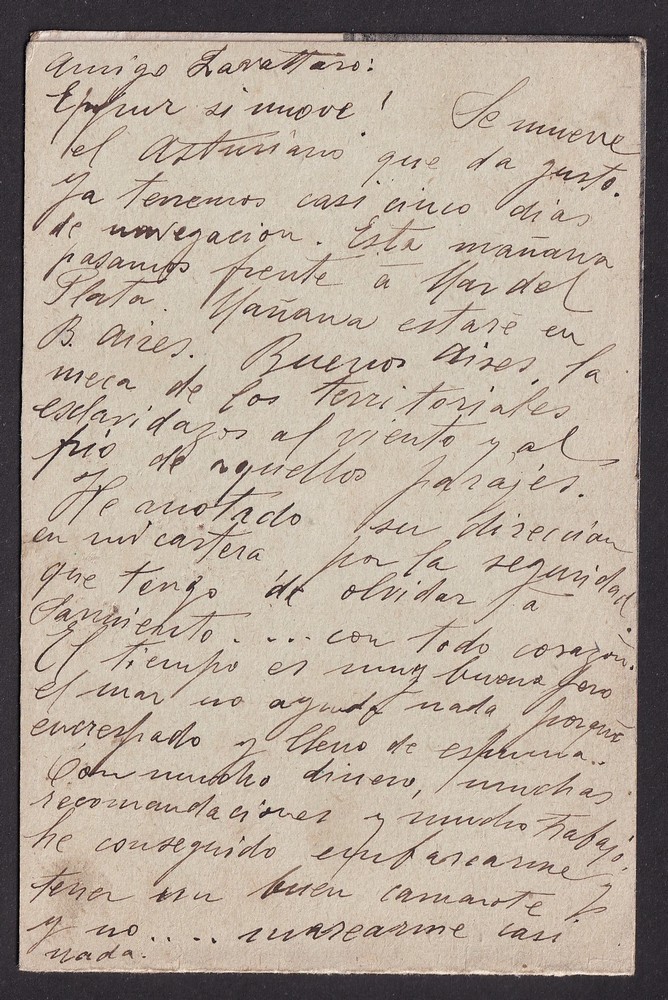 Amigo Zavattaro:
E pur si muove! Se mueve
el Asturiano que da gusto.
Ya tenemos casi cinco dias
de navegacion. Esta mañana
pasamos frente á Mar del
Plata. Mañana estaré en
B. Aires. Buenos Aires, la
meca de los territoriales
esclavizados al viento y al
frio de aquellos parajes.
He anotado su direccion
en mi cartera por la seguridad
que tengo de olvidar á
Sarmiento.... con todo corazon.
El tiempo es muy bueno pero
el mar no ayuda nada porque
encrespado y lleno de espuma..
Con mucho dinero, muchas
recomendaciones y mucho trabajo,
he conseguido embarcarme y
tener un buen camarote
y no.... marearme casi
nada.